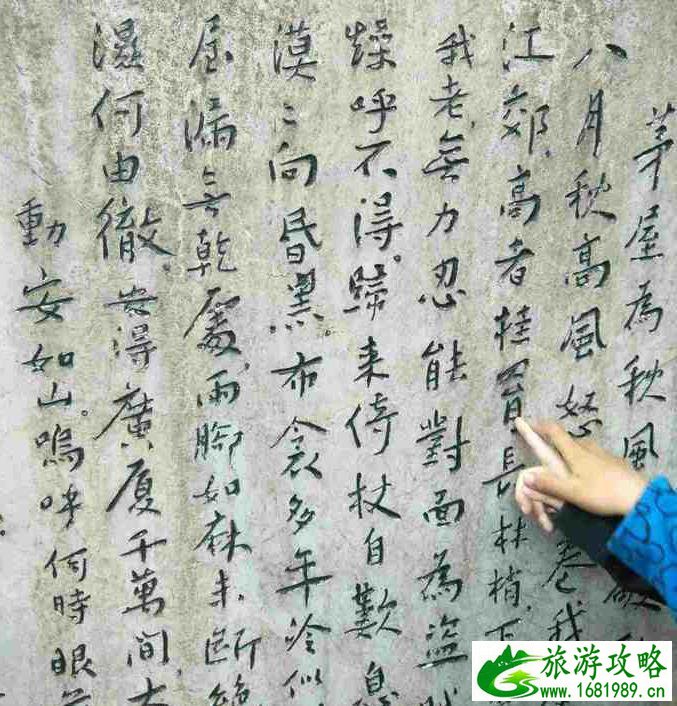 茅屋為秋風
八月秋高風怒卷我
江郊,高者挂罥長林梢,下
我老無力忍能對面為盜賊
燥呼不得。歸来倚杖自歎息
漠〻向昏黑。布衾多年冷似
屋漏無乾處,雨腳如麻未斷絕
濕何由徹。安得廣厦千萬間,大
動安如山。嗚呼何時眼前
旅游攻略
www.1681989.cn